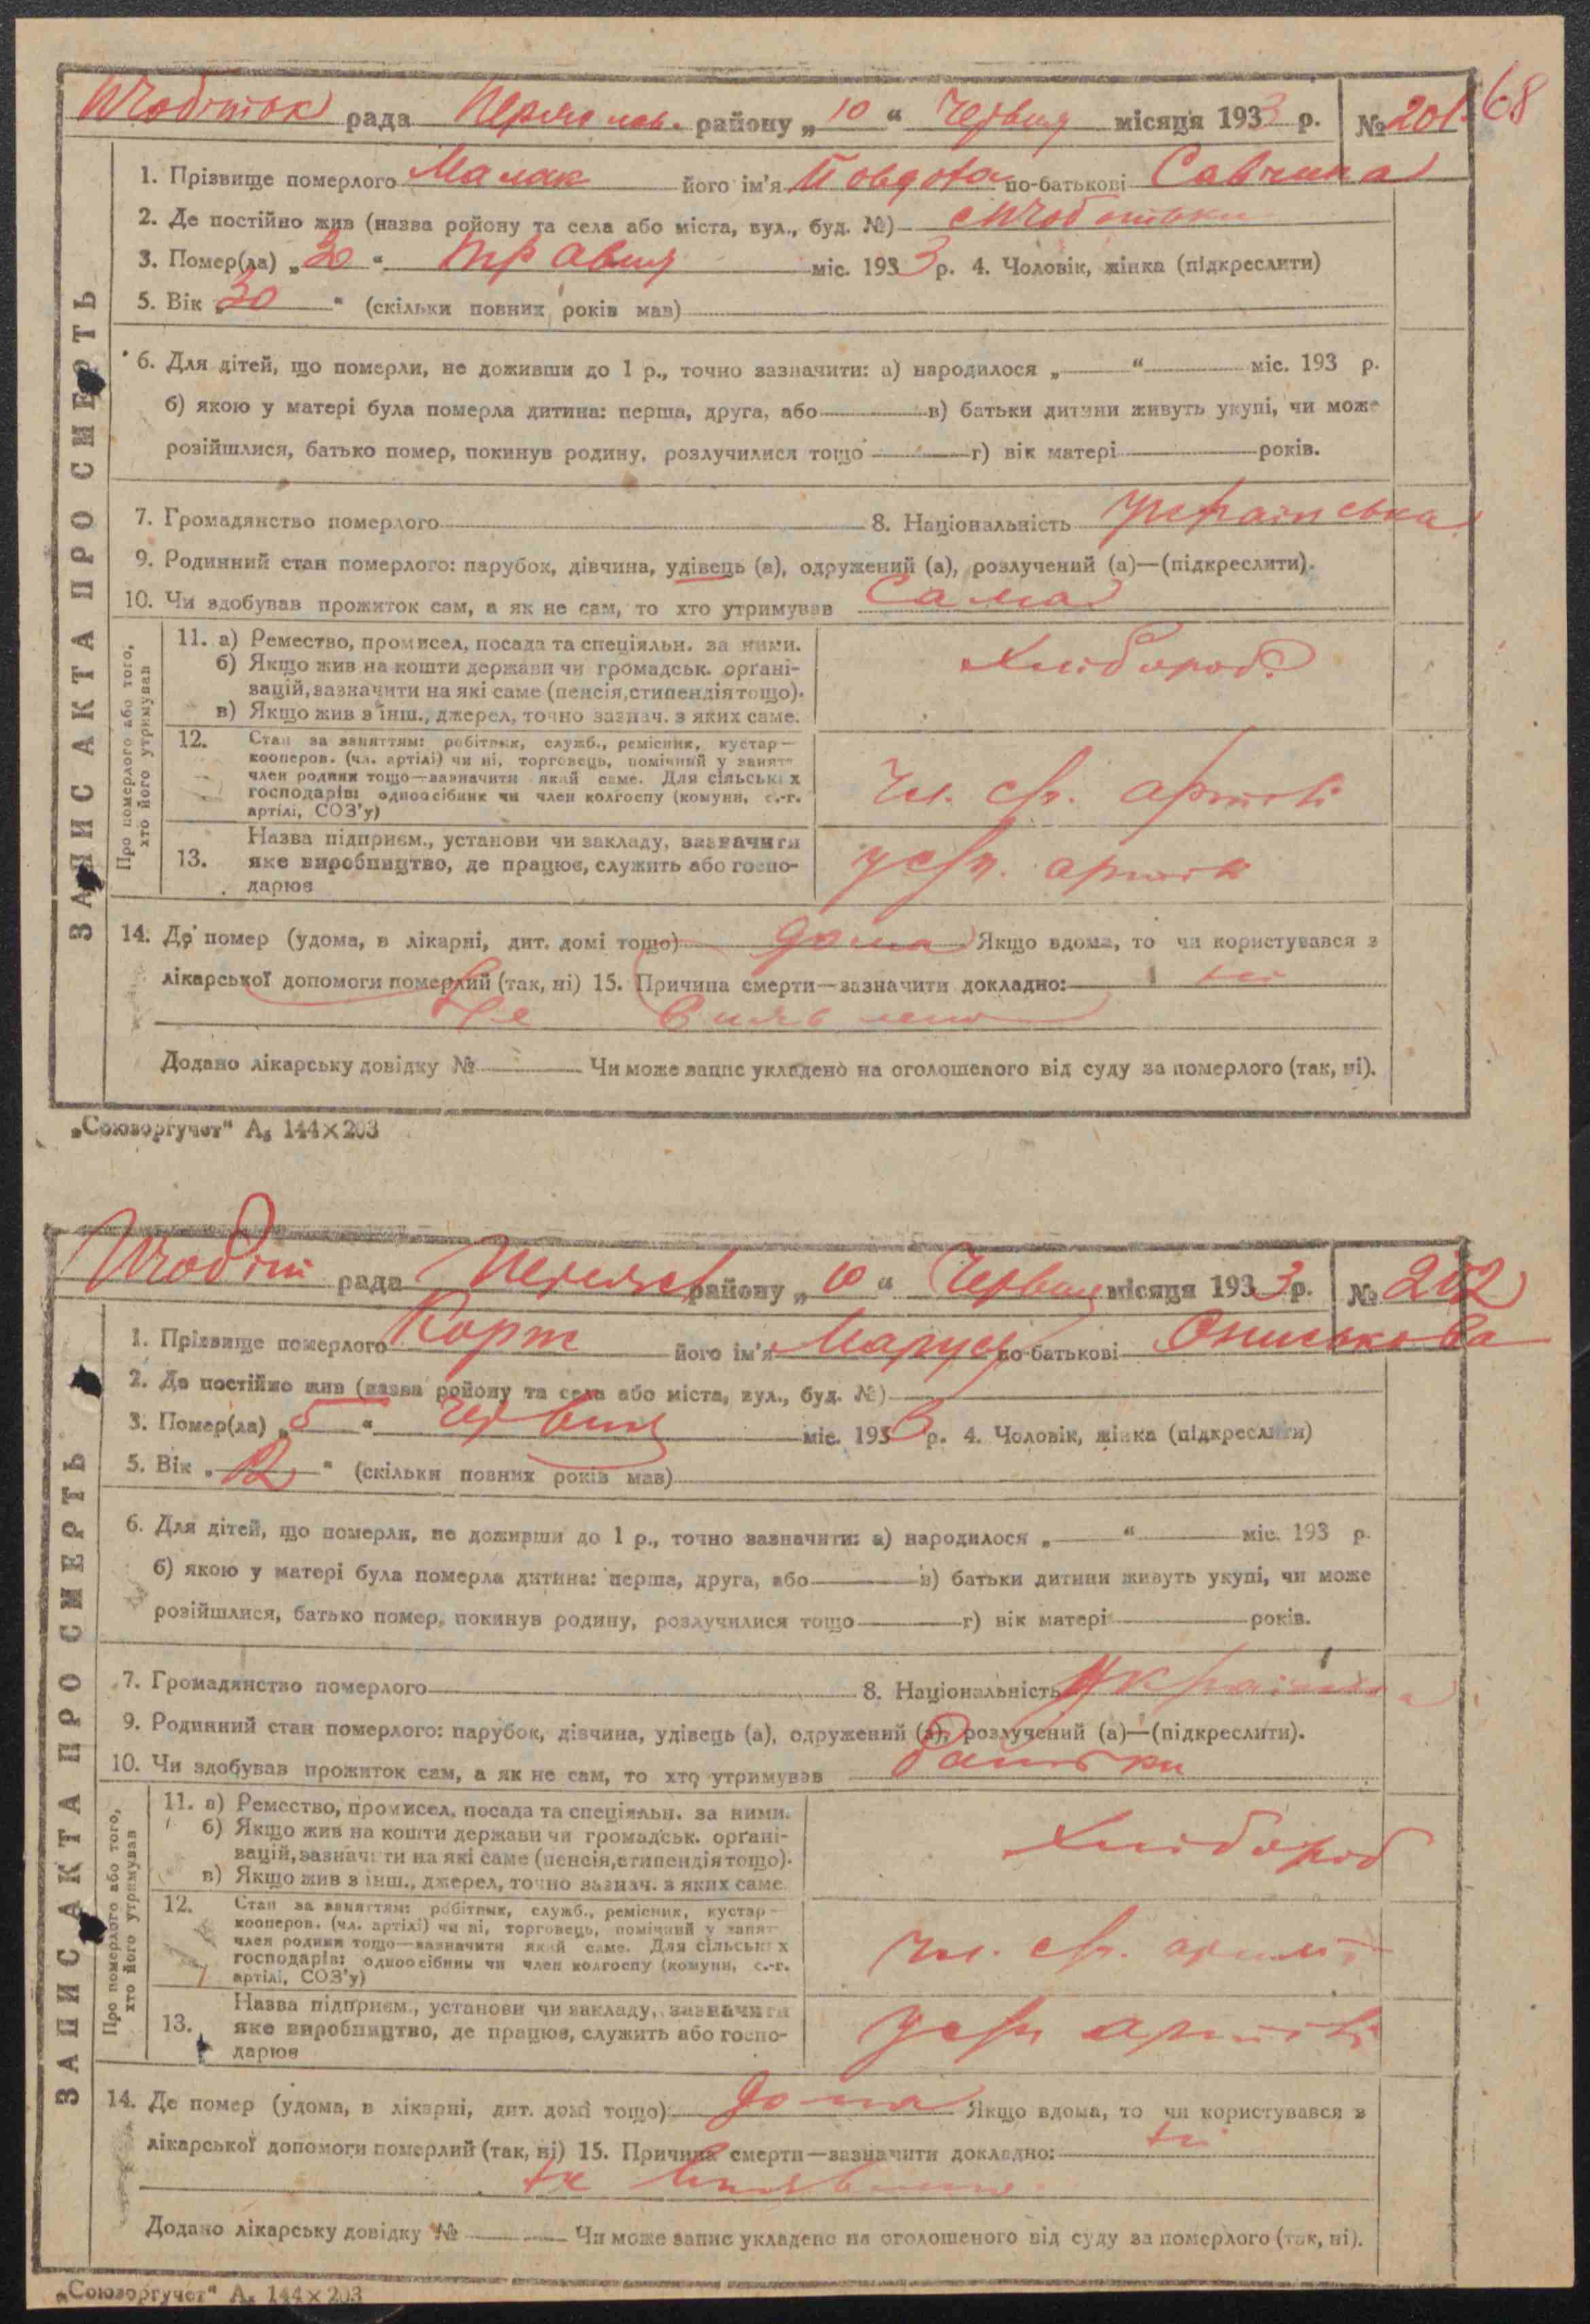 рада район у „ 10 “ Червня місяця 1933 р. № 201 68
ЗАПИС АКТА ПРО СМЕРТЬ
1. Прізвище померлого Малак його ім'я Повдоха по-батькові Савчина
2. Де постійно жив (назва ройону та села або міста, вул., буд. №)
3. Помер(ла) „ 30 “ травня міс. 1933 р. 4. Чоловік, жінка (підкреслити)
5. Вік „ 30 “ (скільки повних років мав)
6. Для дітей, що померли, не доживши до 1 р., точно зазначити: а) народилося „ “ міс. 193 р.
б) якою у матері була померла дитина: перша, друга, або в) батьки дитини живуть укупі, чи може
розійшлися, батько помер, покинув родину, розлучилися тощо г) вік матері років.
7. Громадянство померлого 8. Національність українська
9. Родинний стан померлого: парубок, дівчина, удівець (а), одружений (а), розлучений (а)—(підкреслити).
10. Чи здобував прожиток сам, а як не сам, то хто утримував Сама
Про померлого або того,
хто його утримував
11. а) Ремество, промисел, посада та спеціяльн. за ними.
б) Якщо жив на кошти держави чи громадськ. орґані-
зацій, зазначити на які саме (пенсія, стипендія тощо).
в) Якщо жив з інш., джерел, точно зазнач. з яких саме.
Хлібороб
12. Стан за заняттям: робітник, служб., ремісник, кустар—
кооперов. (чл. артілі) чи ні, торговець, помічний у занят-
член родини тощо—зазначити який саме. Для сільських
господарів: одноосібник чи член колгоспу (комуни, с.-г.
артілі, СОЗ'у)
чл. с/г. артілі
13. Назва підприєм., установи чи закладу, зазначити
яке виробництво, де працює, служить або госпо-
дарює
у с/г. артілі
14. Де помер (удома, в лікарні, дит. домі тощо) дома Якщо вдома, то чи користувався з
лікарської допомоги померлий (так, ні) 15. Причина смерти—зазначити докладно: ні
Не виявлено
Додано лікарську довідку № Чи може запис укладено на оголошеного від суду за померлого (так, ні).
„Союзоргучет“ А₅ 144×203
рада району „ 10 “ Червня місяця 1933 р. № 202
ЗАПИС АКТА ПРО СМЕРТЬ
1. Прізвище померлого Корж його ім'я Маруся по-батькові Ониськова
2. Де постійно жив (назва ройону та села або міста, вул., буд. №)
3. Помер(ла) „ 5 “ червня міс. 1933 р. 4. Чоловік, жінка (підкреслити)
5. Вік „ 12 “ (скільки повних років мав)
6. Для дітей, що померли, не доживши до 1 р., точно зазначити: а) народилося „ “ міс. 193 р.
б) якою у матері була померла дитина: перша, друга, або в) батьки дитини живуть укупі, чи може
розійшлися, батько помер, покинув родину, розлучилися тощо г) вік матері років.
7. Громадянство померлого 8. Національність
9. Родинний стан померлого: парубок, дівчина, удівець (а), одружений (а), розлучений (а)—(підкреслити).
10. Чи здобував прожиток сам, а як не сам, то хто утримував батьки
Про померлого або того,
хто його утримував
11. а) Ремество, промисел, посада та спеціяльн. за ними.
б) Якщо жив на кошти держави чи громадськ. орґані-
зацій, зазначити на які саме (пенсія, стипендія тощо).
в) Якщо жив з інш., джерел, точно зазнач. з яких саме.
Хлібороб
12. Стан за заняттям: робітник, служб., ремісник, кустар—
кооперов. (чл. артілі) чи ні, торговець, помічний у занят-
член родини тощо—зазначити який саме. Для сільських
господарів: одноосібник чи член колгоспу (комуни, с.-г.
артілі, СОЗ'у)
чл. с/г. артілі
13. Назва підприєм., установи чи закладу, зазначити
яке виробництво, де працює, служить або госпо-
дарює
у с/г артілі
14. Де помер (удома, в лікарні, дит. домі тощо) дома Якщо вдома, то чи користувався з
лікарської допомоги померлий (так, ні) 15. Причина смерти—зазначити докладно: ні
не виявлено
Додано лікарську довідку № Чи може запис укладено на оголошеного від суду за померлого (так, ні).
„Союзоргучет“ А₅ 144×203